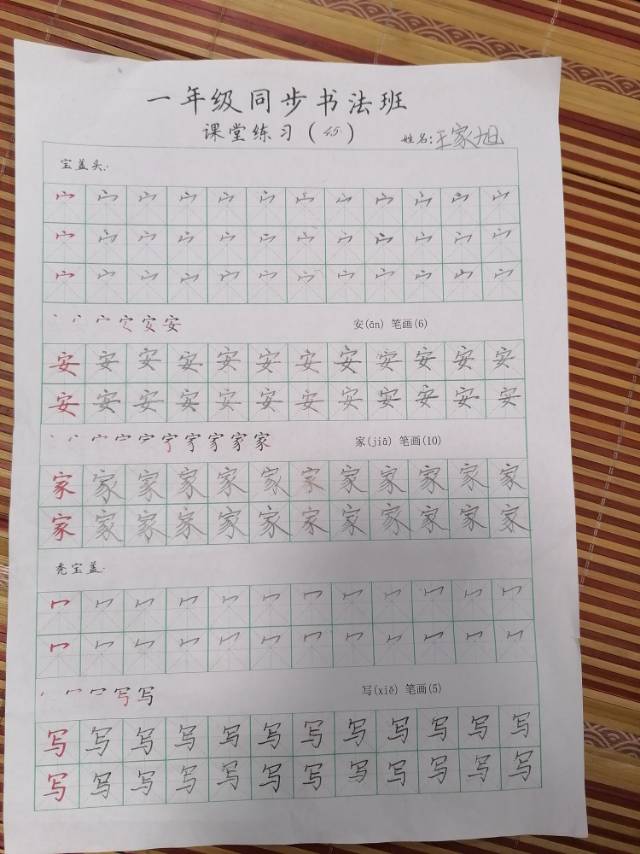 一年级同步书法班
课堂练习(45) 姓名:王家旭
宝盖头:
宀宀宀宀宀宀宀宀宀宀宀宀
宀宀宀宀宀宀宀宀宀宀宀宀
宀宀宀宀宀宀宀宀宀宀宀宀
安安 安(ān) 笔画(6)
安安安安安安安安安安安安
安安安安安安安安安安安安
家 家(jiā) 笔画(10)
家家家家家家家家家家家家
家家家家家家家家家家家家
秃宝盖:
冖冖冖冖冖冖冖冖冖冖冖冖
冖冖冖冖冖冖冖冖冖冖冖冖
写写 写(xiě) 笔画(5)
写写写写写写写写写写写写
写写写写写写写写写写写写